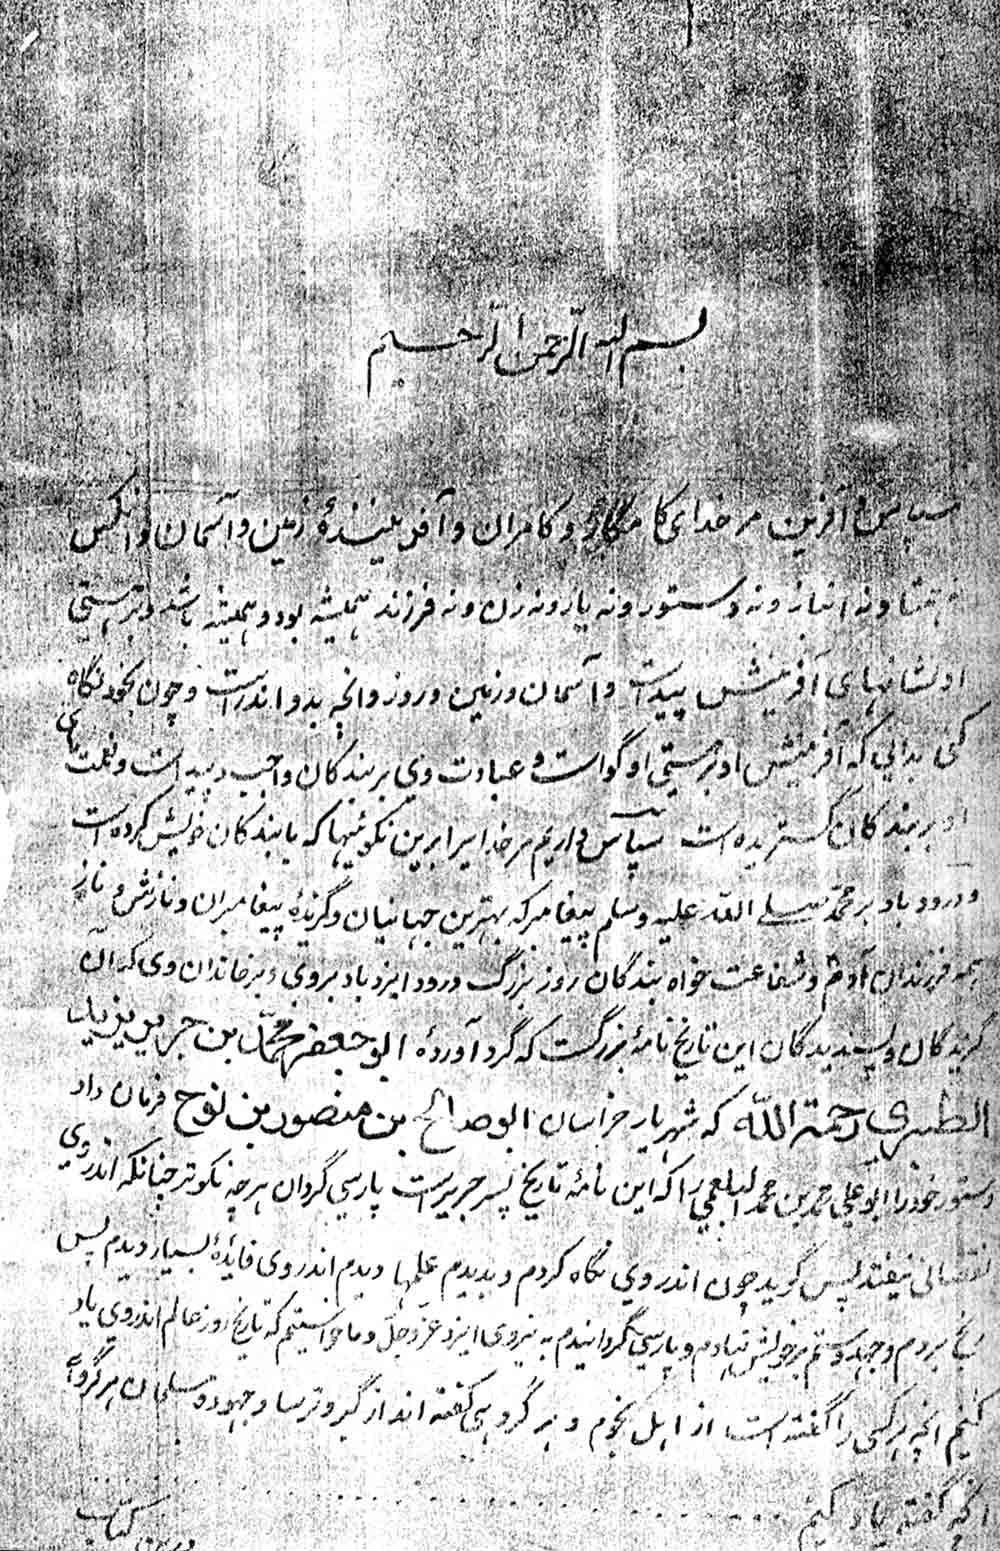 بسم الله الرّحمن الرّحیم
سپاس و آفرین مر خدای کامگار و کامران و آفریننده زمین و آسمان و آنکس
نه همتا و نه انباز و نه دستور و نه یار و نه زن و نه فرزند همیشه بود و همیشه باشد و بر هستی
او نشانهای آفرینش پیداست و آسمان و زمین و روز و آنچه بدو اندرست و چون بخود نگاه
کنی بدانی که آفرینش او بر هستی او گواست و عبادت وی بر بندگان واجب و پیداست و نعمتهای
او بر بندگان گستریده است سپاس داریم مر خدایرا برین نکوئیها که با بندگان خویش کرده است
و درود باد بر محمّد صلی الله علیه و سلم پیغامبر که بهترین جهانیان و گزیدهٔ پیغامبران و نازش و ناز
همه فرزندان آدم و شفاعت خواه بندگان روز بزرگ درود ایزد باد بروی و بر خاندان وی که آن
گزیدگان و پسندیدگان این تاریخ نامهٔ بزرگست که گرد آوردهٔ ابو جعفر محمّد بن جریر یزید
الطبری رحمة الله که شهریار خراسان ابو صالح بن منصور بن نوح فرمان داد
دستور خود را ابو علی محمد بن محمد البلعمی را که این نامهٔ تاریخ پسر جریرست پارسی گردان هر چه نکوتر چنانکه اندر وی
نقصانی نیفتد پس گوید چون اندر وی نگاه کردم و بدیدم علمها دیدم اندر وی فایدهٔ بسیار دیدم پس
رنج بردم و جهد و ستم بر خویش نهادم و پارسی گردانیدم به نیروی ایزد عزّ و جلّ و ما خواستیم که تاریخ روز عالم اندر وی یاد
کنیم آنچه هر کسی را گفته است از اهل نجوم و هر گروهی گفته اند از گبر و ترسا و جهود و مسلمان هر گروهی
آنچه گفته یاد کنیم
کتاب